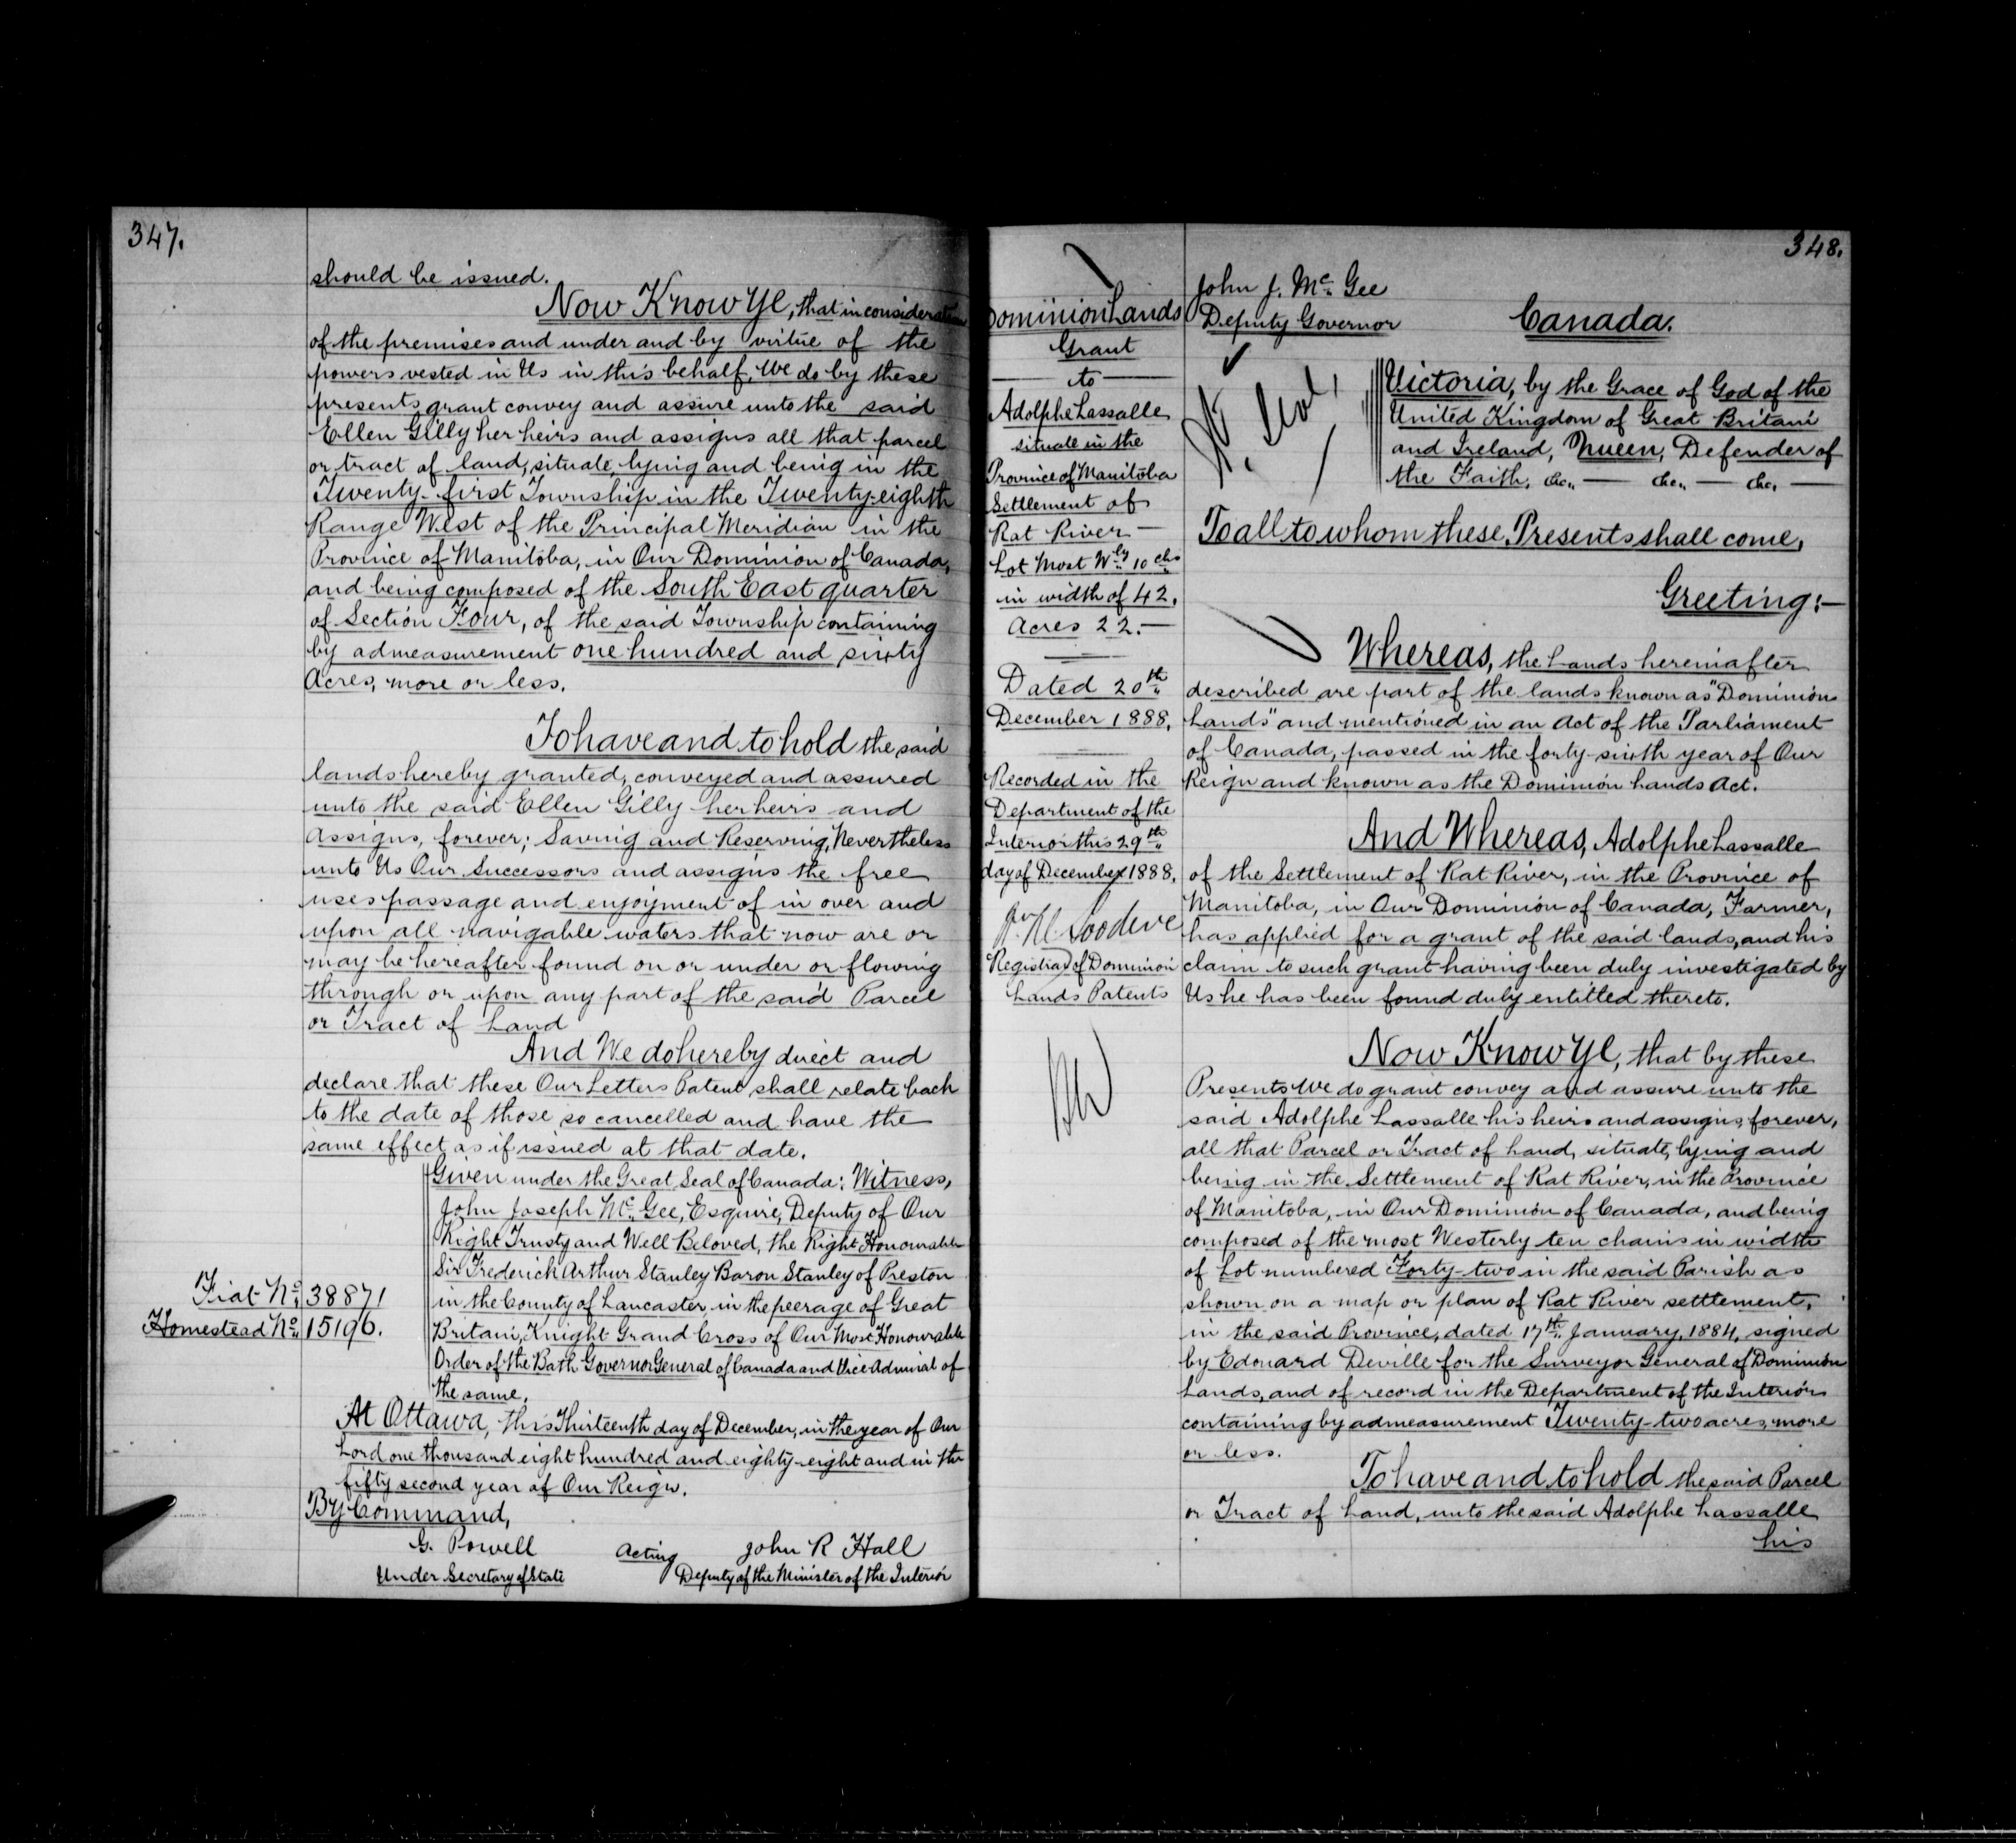 347.
should be issued.
Now Know Ye, that in consideration
of the premises and under and by virtue of the
powers vested in Us in this behalf, We do by these
presents grant convey and assure unto the said
Ellen Gilly her heirs and assigns all that parcel
or tract of land, situate, lying and being in the
Twenty-first Township in the Twenty-eighth
Range West of the Principal Meridian in the
Province of Manitoba, in Our Dominion of Canada,
and being composed of the South East quarter
of Section Four, of the said Township containing
by admeasurement one hundred and sixty
Acres, more or less.
To have and to hold the said
lands hereby granted, conveyed and assured
unto the said Ellen Gilly her heirs and
Assigns, forever; Saving and Reserving, Nevertheless
unto Us Our Successors and assigns the free
uses passage and enjoyment of in over and
upon all navigable waters that now are or
may be hereafter found on or under or flowing
through or upon any part of the said Parcel
or Tract of Land
And We do hereby direct and
declare that these Our Letters Patent shall relate back
to the date of those so cancelled and have the
same effect as if issued at that date.
Given under the Great Seal of Canada: Witness,
John Joseph McGee, Esquire, Deputy of Our
Right Trusty and Well Beloved, the Right Honourable
Sir Frederick Arthur Stanley Baron Stanley of Preston
in the County of Lancaster, in the peerage of Great
Britain, Knight Grand Cross of Our Most Honourable
Order of the Bath Governor General of Canada and Vice Admiral of
the same.
Fiat No. 38871
Homestead No. 15196.
At Ottawa, this Thirteenth day of December, in the year of Our
Lord one thousand eight hundred and eighty-eight and in the
fifty second year of Our Reign.
By Command,
G. Powell
Under Secretary of State
Acting John R Hall
Deputy of the Minister of the Interior
348.
Dominion Lands
Grant
to
Adolphe Lassalle
situate in the
Province of Manitoba
Settlement of
Rat River
Lot Most Wly 10 chs
in width of 42.
Acres 22.
Dated 20th
December 1888.
Recorded in the
Department of the
Interior this 29th
day of December 1888.
Goodeve
Registrar of Dominion
Lands Patents
John J. McGee
Deputy Governor
Canada.
Victoria, by the Grace of God of the
United Kingdom of Great Britain
and Ireland, Queen, Defender of
the Faith, &c., — &c., — &c. —
To all to whom these Presents shall come,
Greeting:—
Whereas, the Lands hereinafter
described are part of the lands known as "Dominion
Lands" and mentioned in an Act of the Parliament
of Canada, passed in the forty-sixth year of Our
Reign and known as the Dominion Lands Act.
And Whereas, Adolphe Lassalle
of the Settlement of Rat River, in the Province of
Manitoba, in Our Dominion of Canada, Farmer,
has applied for a grant of the said lands, and his
claim to such grant having been duly investigated by
Us he has been found duly entitled thereto.
Now Know Ye, that by these
Presents We do grant convey and assure unto the
said Adolphe Lassalle his heirs and assigns, forever,
all that Parcel or Tract of Land, situate, lying and
being in the Settlement of Rat River, in the Province
of Manitoba, in Our Dominion of Canada, and being
composed of the most Westerly ten chains in width
of Lot numbered Forty-two in the said Parish as
shown on a map or plan of Rat River settlement,
in the said Province, dated 17th January, 1884, signed
by Edouard Deville for the Surveyor General of Dominion
Lands, and of record in the Department of the Interior
containing by admeasurement Twenty-two acres, more
or less.
To have and to hold the said Parcel
or Tract of Land, unto the said Adolphe Lassalle
his